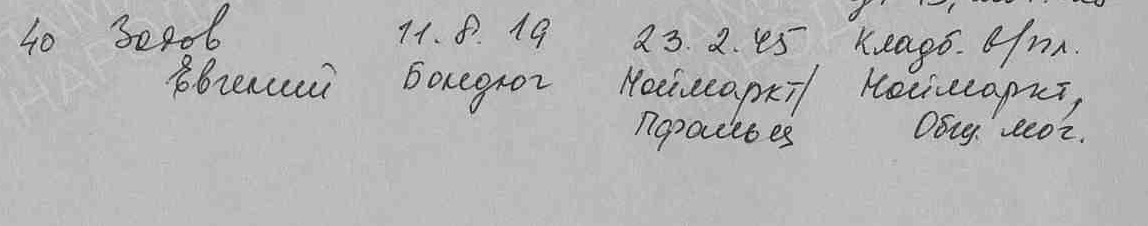 40 Зотов 11.8.19 23.2.45 Кладб. в/пл.
Евгений Бондюг Ноймаркт/ Ноймаркт,
Пфальц Общ. мог.